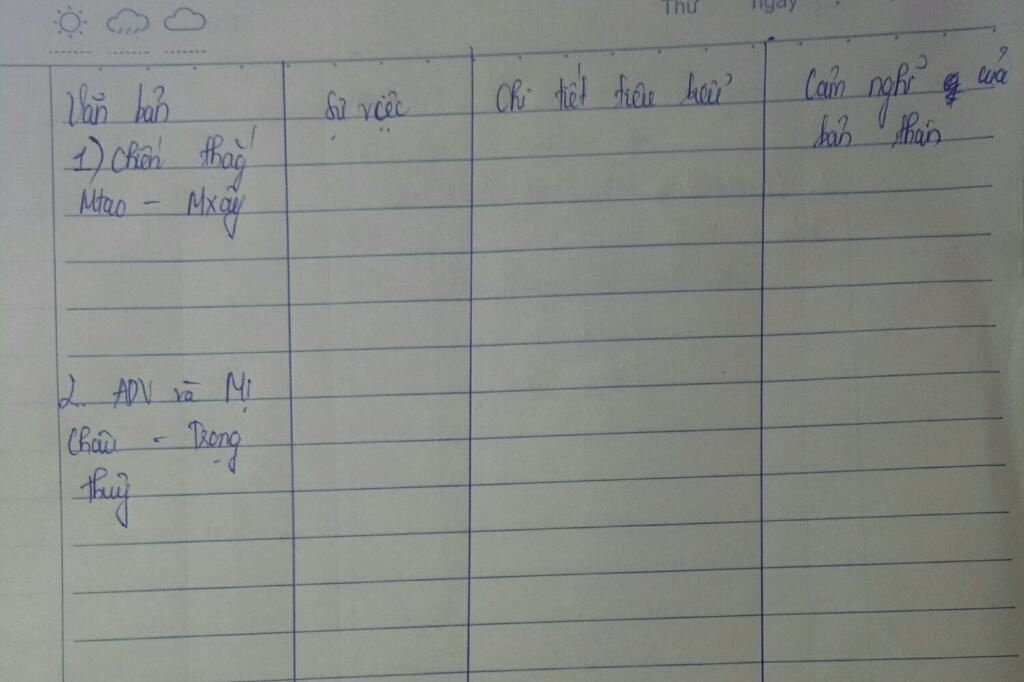 Thứ ngày
Văn bản
Sự việc
Chi tiết tiêu biểu
Cảm nghĩ của
bản thân
1) Chiến thắng
Mtao - Mxây
2. ADV và Mị
Châu - Trọng
Thuỷ